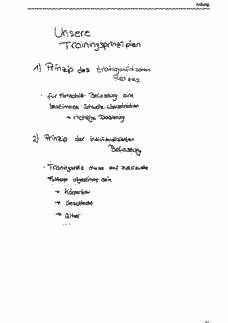 Unsere
Trainingsprinzipien
1) Prinzip des trainingswirksamen
Reizes
· für Fortschritt Belastung eine
bestimmte Schwelle überschreiten
→ richtige Dosierung
2) Prinzip der individualisierten
Belastung
· Trainingsreize muss auf
abgestimmt sein
→ Körperbau
→ Geschlecht
→ Alter
...